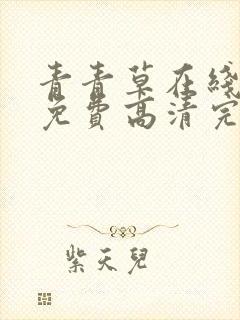 青青草在线
免费高清完
紫天儿